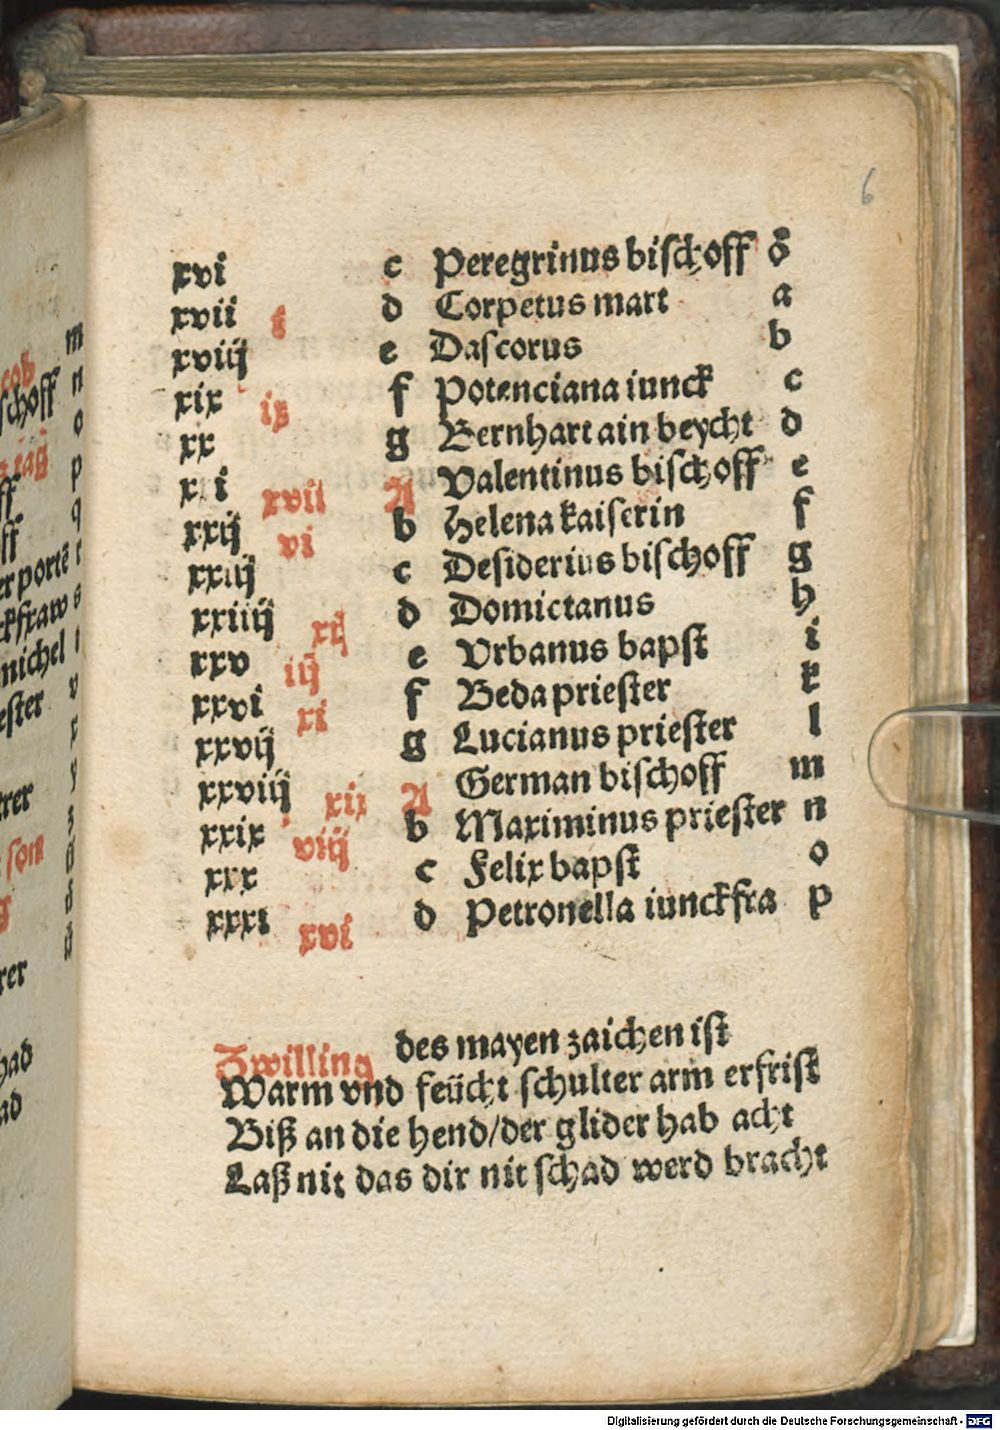 6
xvi c Peregrinus bischoff ō
xvii f d Corpetus mart a
xviij e Dascorus b
xix ix f Potenciana iunck c
xx g Bernhart ain beycht d
xxi xvii A Valentinus bischoff e
xxij vi b Helena kaiserin f
xxiij c Desiderius bischoff g
xxiiij xij d Domictanus h
xxv iij e Vrbanus bapst i
xxvi xi f Beda priester k
xxvij g Lucianus priester l
xxviij xix A German bischoff m
xxix viij b Maximinus priester n
xxx c Felix bapst o
xxxi xvi d Petronella iunckfra p
Zwilling des mayen zaichen ist
Warm vnd feücht schulter arm erfrist
Biß an die hend/der glider hab acht
Laß nit das dir nit schad werd bracht
m
schoff n
o
tag p
ff q
ff
er portē r
ckfraw s
michel t
ester v
x
y
rer z
son
rer
had
ad
Digitalisierung gefördert durch die Deutsche Forschungsgemeinschaft - DFG